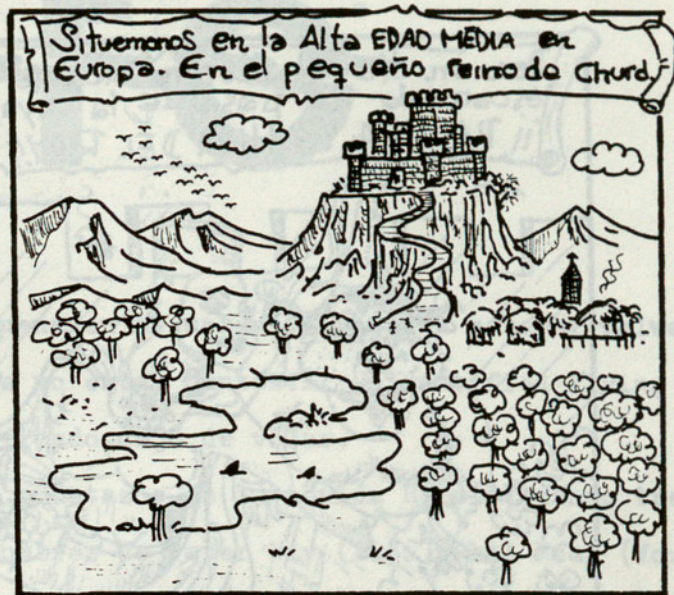 Situemonos en la Alta EDAD MEDIA en
Europa. En el pequeño reino de Churd.